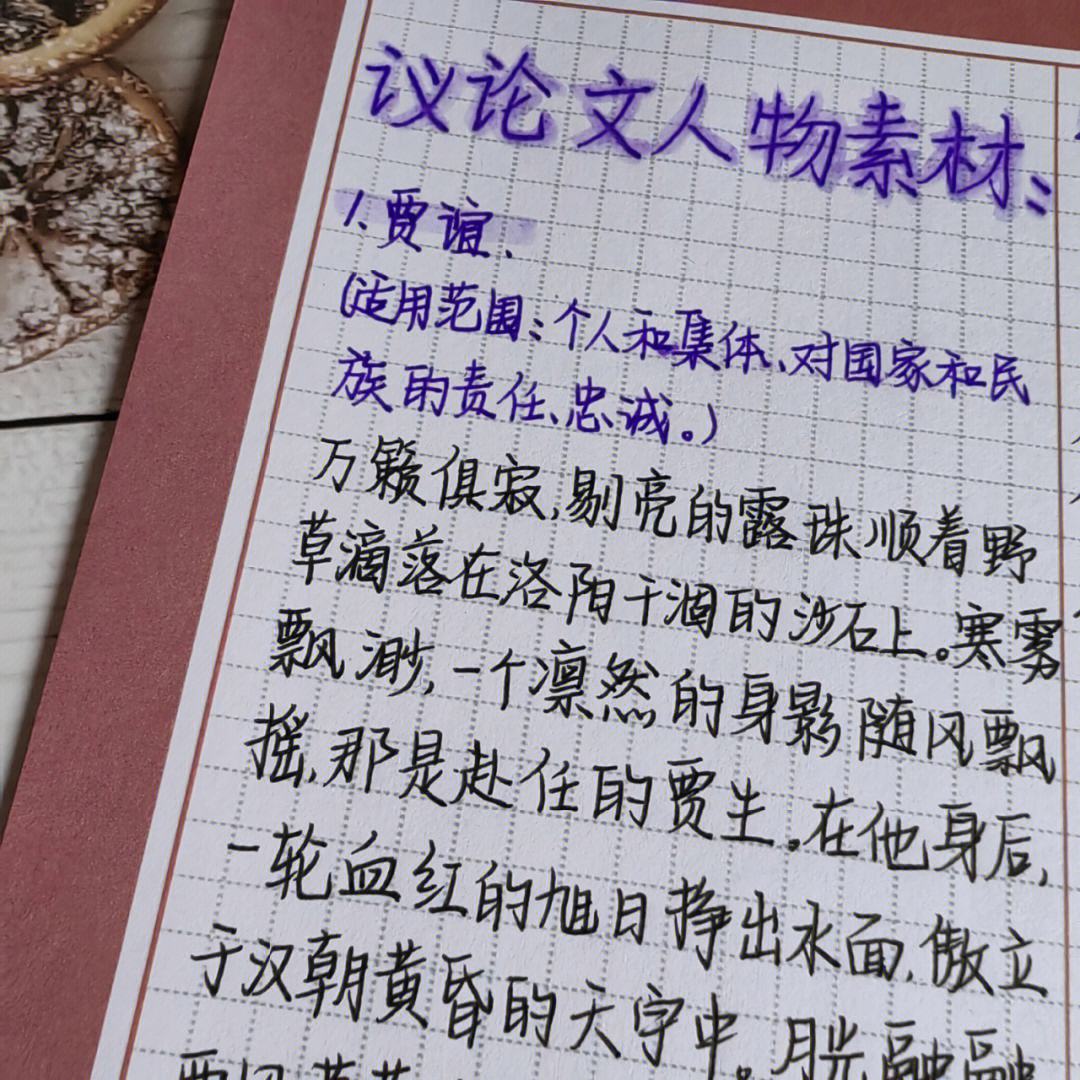 议论文人物素材:
1.贾谊.
(适用范围:个人和集体、对国家和民
族的责任、忠诚。)
万籁俱寂,剔亮的露珠顺着野
草滴落在洛阳干涸的沙石上。寒雾
飘渺,一个凛然的身影随风飘
摇,那是赴任的贾生。在他身后,
一轮血红的旭日挣出水面,傲立
于汉朝黄昏的天字中。月光融融